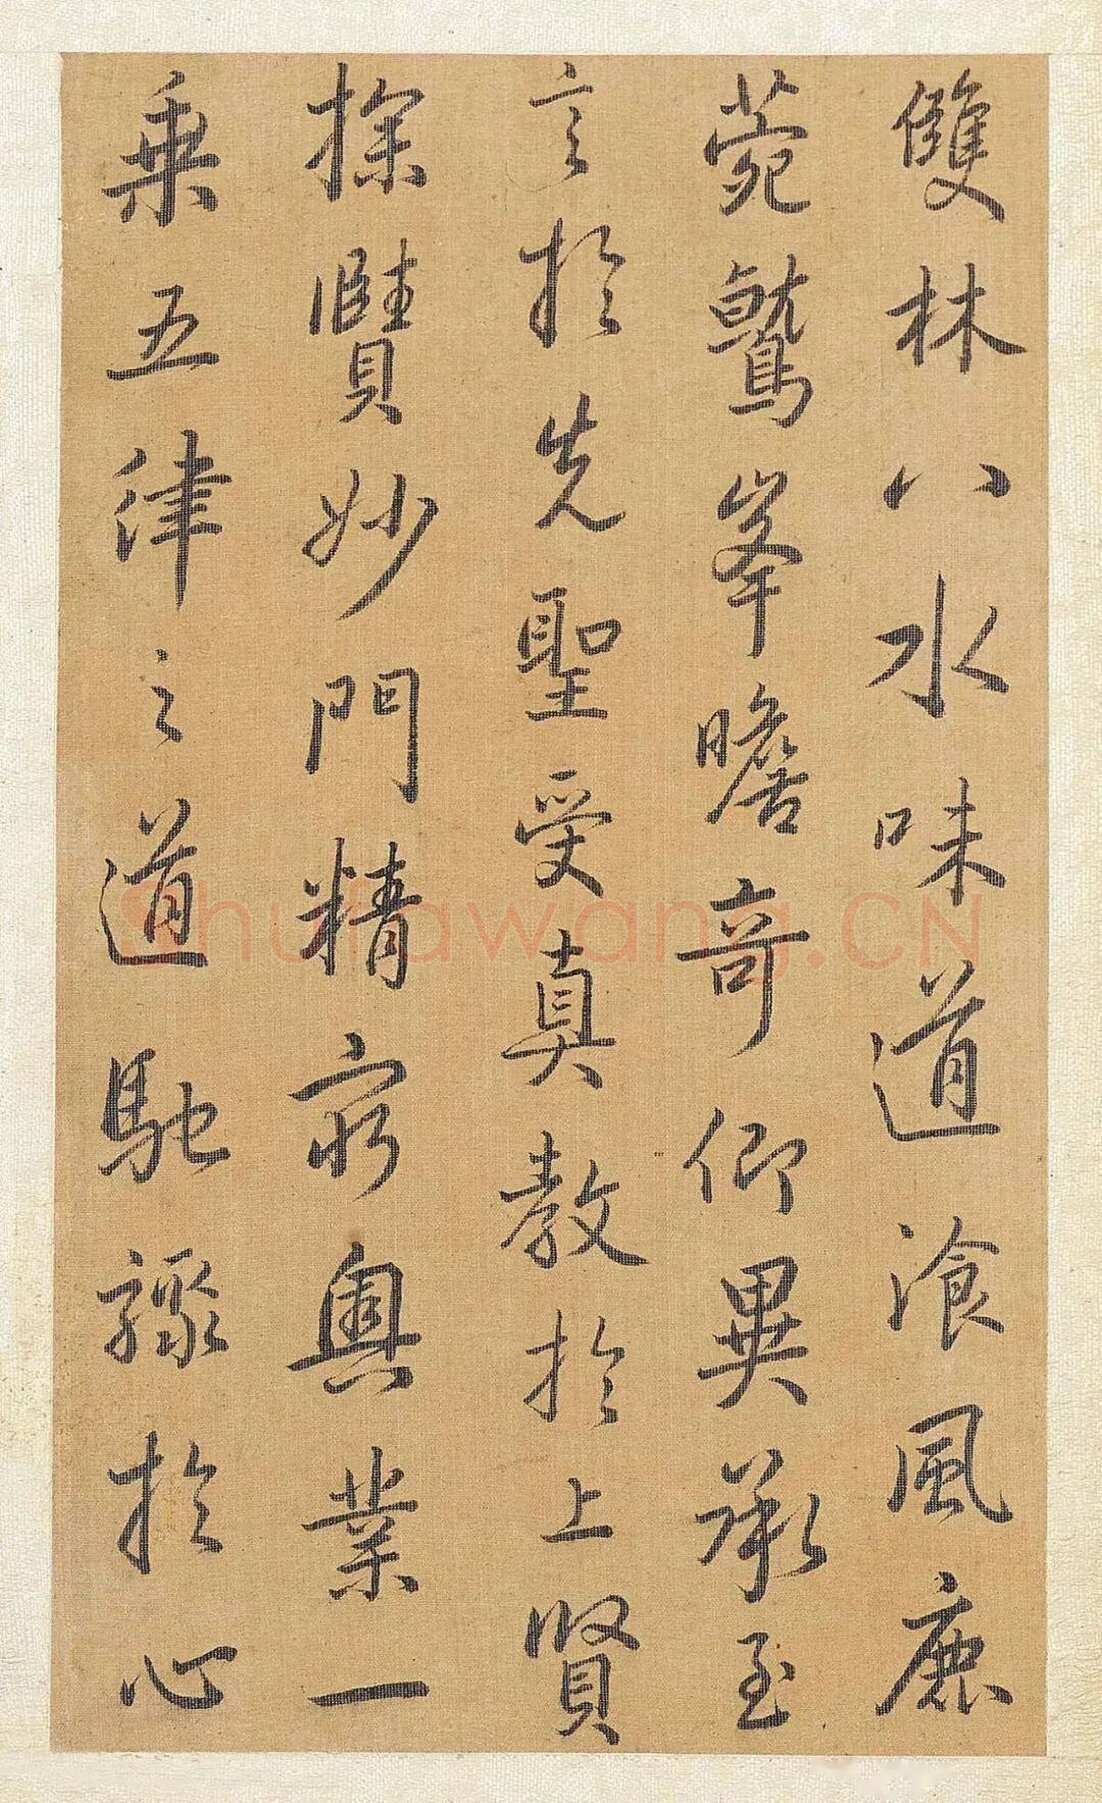 雙林八水味道飡風鹿
菀鷲峯瞻奇仰異承至
言於先聖受真教於上賢
探賾妙門精窮奧業一
乗五律之道馳驟於心
Shufawang.CN